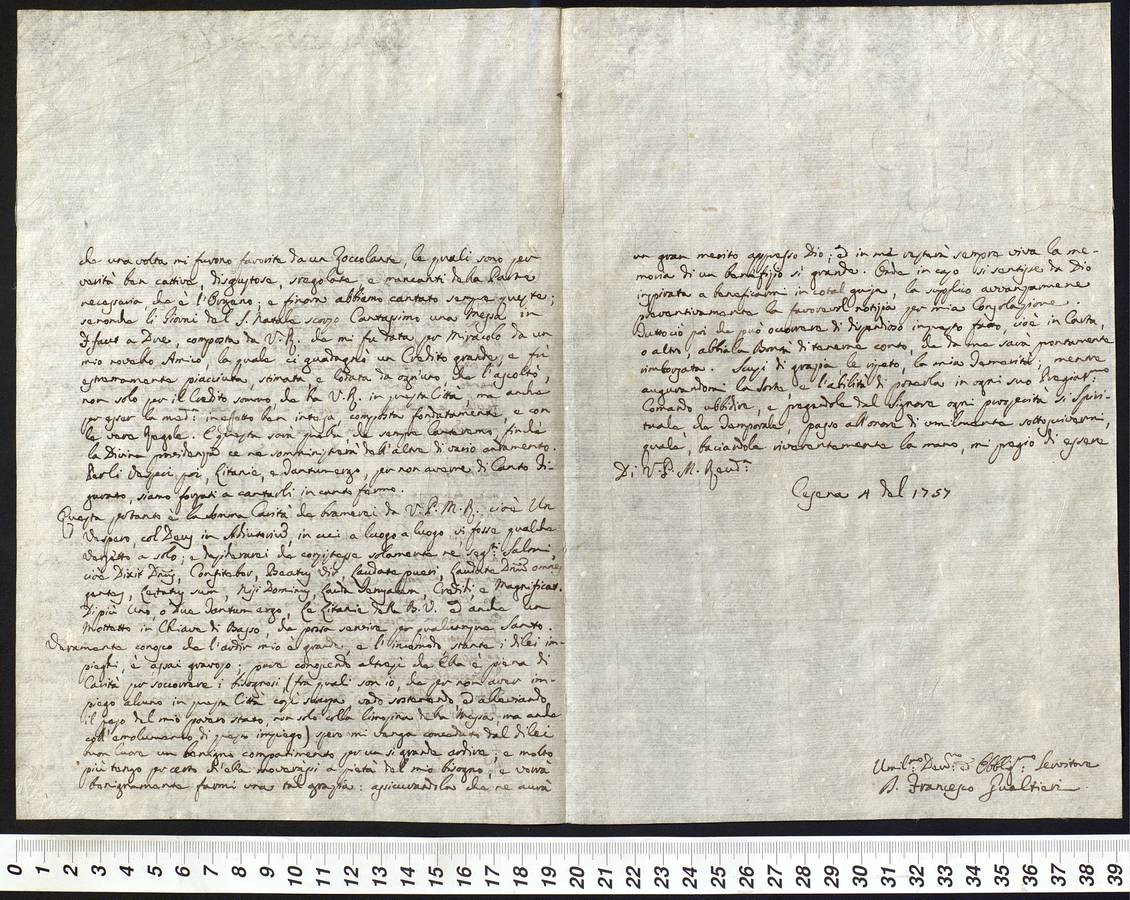 che una volta mi furono favorite da un Zoccolante, le quali sono per
verità ben cattive, disgustose, sregolate, e mancanti della Parte
necessaria che è l'Organo; e finora abbiamo cantato sempre queste;
senonche li Giorni del S. Natale scorso Cantassimo una Messa in
Ffaut a Due, composta da V.R. che mi fu data per Miracolo da un
mio novello Amico, la quale ci guadagnò un Credito grande, e fù
estremamente piaciuta, stimata, e lodata da ogn'uno, che l'ascoltò,
non solo per il Credito sommo, che ha V.R. in questa Città, ma anche
per esser la med.ma in effetto ben intesa, composta fondatamente, e con
le vere Regole. E questa sarà quella, che sempre canteremo, finche
la Divina providenza ce ne somministrerà dell'altre di vario andamento.
Per li Vesperi poi, Litanie, e Tantumergo, per non averne di Canto fi-
gurato, siamo forzati a cantarli in canto fermo.
Questa pertanto è la somma Carità che bramerei da V.P.M.R. cioè Un
Vespero, col Deus in Adiutorium, in cui a luogo a luogo vi fosse qualche
Versetto a solo; e desiderarei che consistesse solamente ne seg.ti Salmi,
cioè Dixit Dnus, Confitebor, Beatus Vir, Laudate pueri, Laudate Dnum omnes
gentes, Letatus sum, Nisi Dominus, Lauda Jerusalem, Credidi, e Magnificat.
Di più Uno, o due Tantumergo, Le Litanie della B.V. ed anche un
Mottetto in Chiave di Basso, che possa servire per qualunque Santo.
Veramente conosco che l'ardir mio è grande, e l'incomodo stante i di lei im-
pieghi, è assai gravoso; pure conoscendo altresì che Ella è piena di
Carità per soccorrere i bisognosi, (fra quali son io, che per non aver im-
piego alcuno in questa Città vado sostenendo, ed alleviando
il peso del mio povero stato, non solo colla limosina della Messa, ma anche
coll'emolumento di questo impiego) spero mi venga conceduto dal di lei
buon Cuore un benigno compatimento per un sì grande ardire; e molto
più tengo per certo ch'ella moverassi a pietà del mio bisogno, e vorrà
benignamente farmi una tal grazia: assicurandola che ne avrà
un gran merito appresso Dio; ed in me resterà sempre viva la me-
moria di un benifizio sì grande. Onde in caso si sentisse da Dio
inspirata a beneficarmi in cotal guisa, la supplico avvanzarmene
preventivamente la favorevol notizia per mia Consolazione.
Tutto ciò poi che può occorrere di dispendioso in questo fatto, cioè in Carta,
o altro, abbia la Bontà di tenerne conto, che da me sarà prontamente
rimborzata. Scusi di grazia, le ripeto, la mia temerità, mentre
augurandomi la sorte, e l'abilità di poterla in ogni suo Pregiat.mo
Comando ubbidire, e pregandole dal Signore ogni prosperità sì spiri-
tuale che temporale, passo all'onore di umilmente sottoscrivermi,
quale, baciandole riverentemente la mano, mi pregio di essere
Di V.P.M. Rev.da
Cesena A del 1757
Umil.mo Dev.mo ed Obblig.mo Servitore
D. Francesco Gualtieri
0 1 2 3 4 5 6 7 8 9 10 11 12 13 14 15 16 17 18 19 20 21 22 23 24 25 26 27 28 29 30 31 32 33 34 35 36 37 38 39